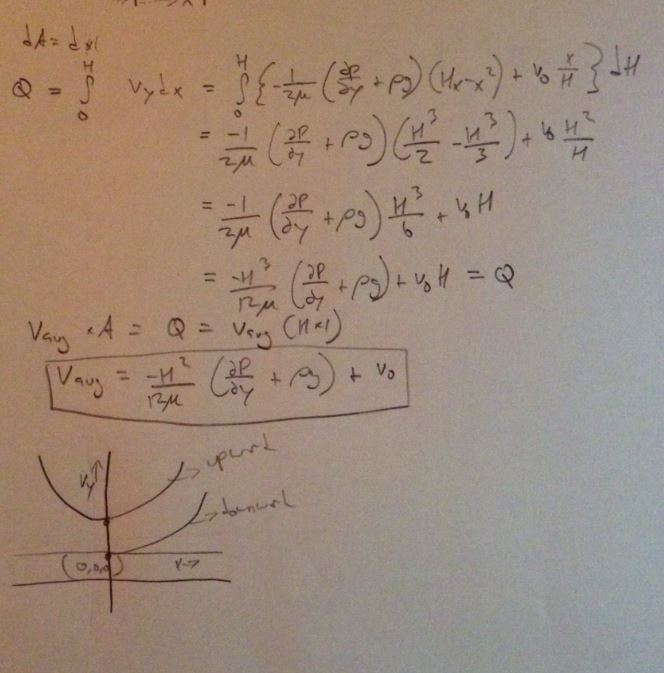 dA = dx1
Q = ∫₀ᴴ v_y dx = ∫₀ᴴ {-1/2μ (∂P/∂y + ρg) (Hx-x²) + v₀ x/H} dH
= -1/2μ (∂P/∂y + ρg) (H³/2 - H³/3) + v₀ H²/H
= -1/2μ (∂P/∂y + ρg) H³/6 + v₀H
= -H³/12μ (∂P/∂y + ρg) + v₀H = Q
V_avg × A = Q = V_avg (H×1)
V_avg = -H²/12μ (∂P/∂y + ρg) + v₀
→ upward
v_y ↑
→ downward
(0,0,0) x→